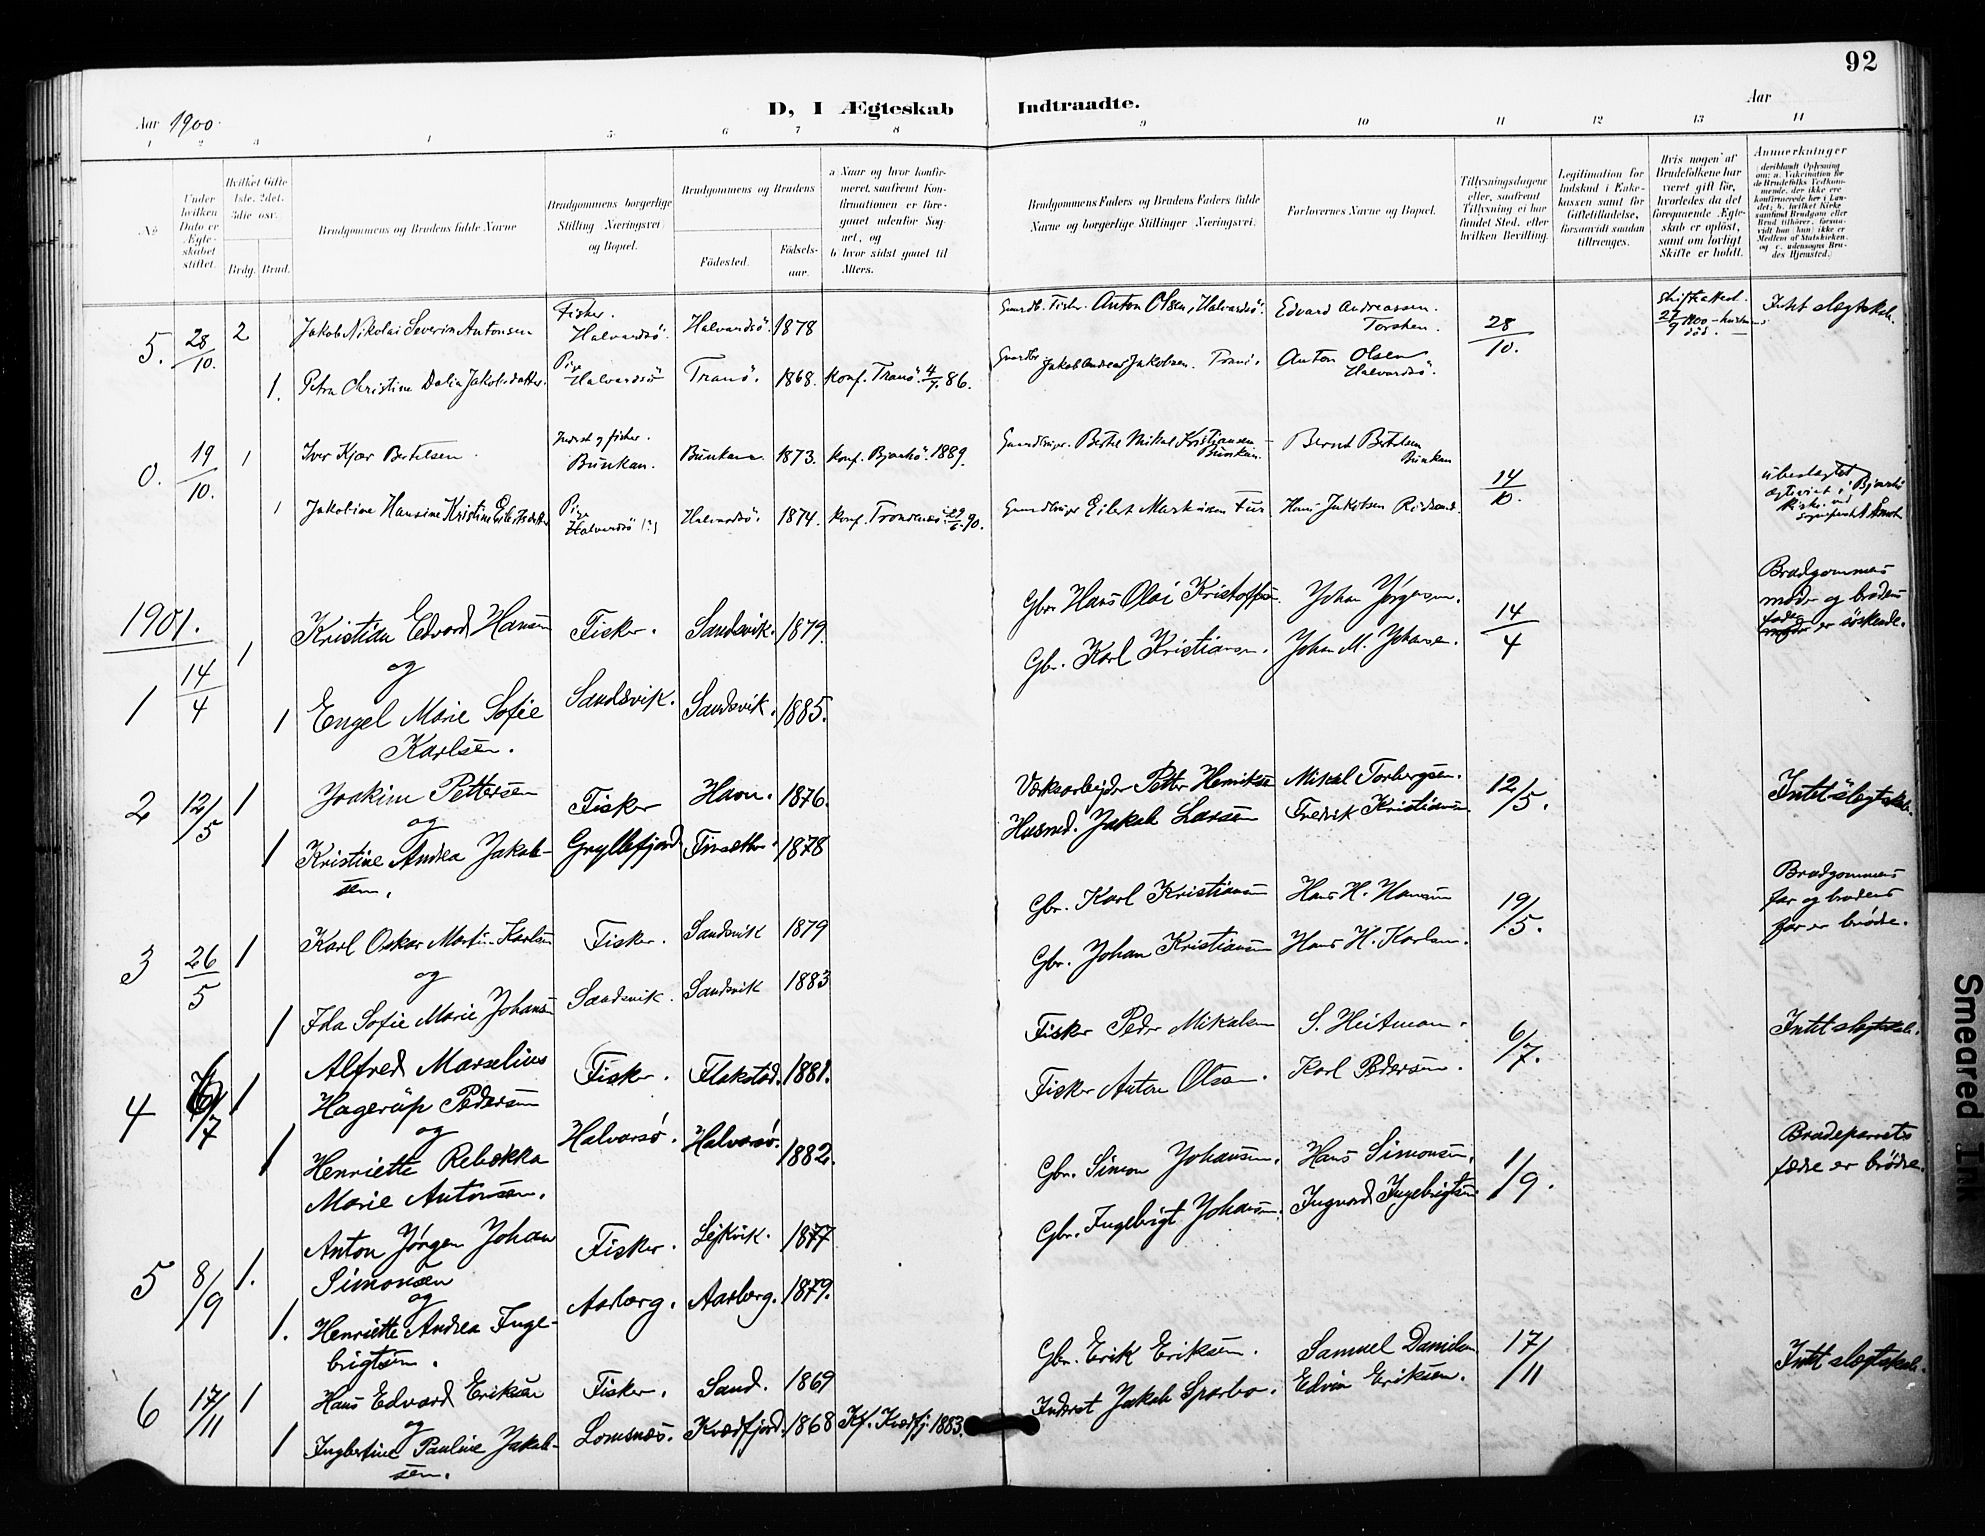 92
D, I Ægteskab Indtraadte.
Aar 1900. Aar
1 2 3 4 5 6 7 8 9 10 11 12 13 14
No
Under hvilken Dato er Ægteskabet stiftet.
Hvilket Gifte 1ste, 2det, 3die osv.
Brdg. Brud.
Brudgommens og Brudens fulde Navne
Brudgommens borgerlige Stilling Næringsvei og Bopæl.
Brudgommens og Brudens
Fødested. Fødsels-aar.
a Naar og hvor konfirmeret, saafremt Konfirmationen er foregaaet udenfor Sognet, og
b hvor sidst gaaet til Alters.
Brudgommens Faders og Brudens Faders fulde Navne og borgerlige Stillinger Næringsvei.
Forlovernes Navne og Bopæl.
Tillysningsdagene eller, saafremt Tillysning ei har fundet Sted, efter hvilken Bevilling.
Legitimation for Indskud i Enkekassen samt for Giftetilladelse, forsaavidt saadan tiltrænges.
Hvis nogen af Brudefolkene har været gift før, hvorledes da det foregaaende Ægteskab er opløst, samt om lovligt Skifte er holdt.
Anmerkninger
5. 28/10. 2 Jakob Nikolai Severin Antonsen Fisker. Halvardsö. Halvardsö. 1878 Anton Olsen, Halvardsö. Edvard Andreassen Torsken. 28/10. Skifteattest 27/9 1900 Intet slegtskab.
1. Petra Christine Dalia Jakobsdatter. Pige Halvardsö Tranö. 1868. Konf. Tranö 4/7. 86. Jakob Andreas Jakobsen. Tranö. Anton Olsen Halvardsö.
19/10. 1 Iver Kjær Bertelsen Inderst og fisker. Bunkan. Bunkan. 1873. Konf. Bjarkö. 1889. Bertel Mikal Kristiansen Bunkan Bernt Bertelsen Bunkan 14/10. ubeslægtet
1 Jakobine Hansine Kristine Eilertsdatter Pige Halvardsö (?) Halvardsö. 1874. Konf. Trondenæs 29/6. 90. Eilert Markusen
1901.
1 14/4 1 Kristian Edvard Hansen Fisker. Sandsvik. 1879. Gbr. Hans Olai Kristoffersen. Johan Jørgensen. 14/4 Brudgommens moder og brudens fader er søskende.
og
1 Engel Marie Sofie Karlsen. Sandsvik. Sandsvik. 1885. Gbr. Karl Kristiansen. Johan M. Johansen.
2 12/5 1 Joakim Pettersen Fisker Havn. 1876. Værksarbejder Petter Henriksen Mikal Torbergsen. 12/5. Intet slegtskab.
og
1 Kristine Andrea Jakobsen. Gryllefjord 1878 Husmd. Jakob Larsen Fredrik Kristiansen
3 26/5 1 Karl Oskar Martin Karlsen Fisker. Sandsvik 1879 Gbr. Karl Kristiansen Hans H. Hansen 19/5. Brudgommens far og brudens far er brødre.
og
1 Ida Sofie Marie Johansen Sandsvik. Sandsvik 1883 Gbr. Johan Kristiansen Hans H. Karlsen.
4 6/7 1 Alfred Marselius Hagerüp Pedersen Fisker. Flakstad. 1881. Fisker Peder Mikalsen S. Heitmann. 6/7. Intet slegtskab.
og
1 Henriette Rebekka Marie Antonsen. Halvarsø. Halvarsø. 1882. Fisker Anton Olsen. Karl Pedersen.
5 8/9 1. Anton Jørgen Johan Simonsen Fisker. 1877 Gbr. Simon Johansen. Hans Simonsen. 1/9. Brudeparrets fædre er brødre.
og
1. Henriette Andrea Ingebrigtsen. Aarberg. Aarberg. 1879. Gbr. Ingebrigt Johansen. Ingvard Ingebrigtsen
6 17/11 1 Hans Edvard Eriksen Fisker. Sand. 1869 Gbr. Erik Eriksen. Samuel Danielsen 17/11 Intet slegtskab.
og
1 Ingbertine Pauline Jakobsen. Lomsnæs. Kvædfjord. 1868 Kf. Kvædfj. 1883. Inderst Jakob Sparbo. Edvin Eriksen.
Smeared Ink